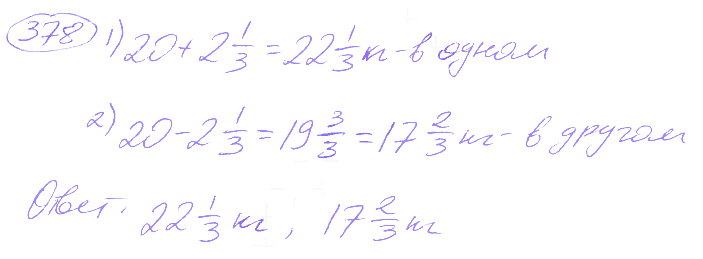 378 1) 20 + 2 1/3 = 22 1/3 кг - в одном
2) 20 - 2 1/3 = 19 3/3 = 17 2/3 кг - в другом
Ответ. 22 1/3 кг, 17 2/3 кг